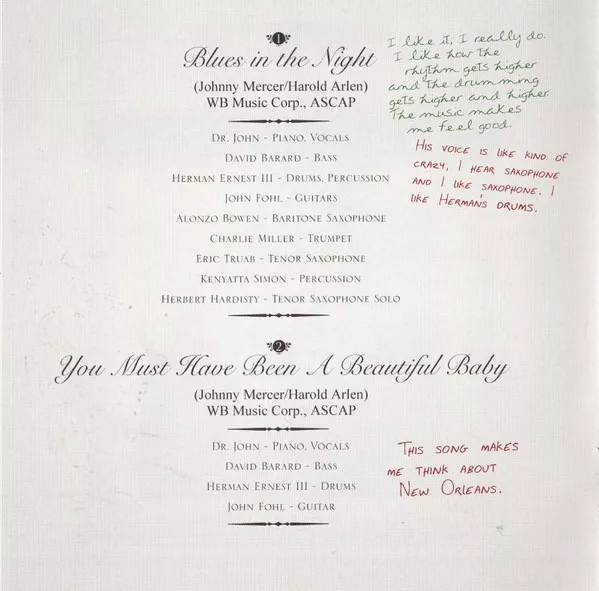 1
Blues in the Night
(Johnny Mercer/Harold Arlen)
WB Music Corp., ASCAP
Dr. John – Piano, Vocals
David Barard – Bass
Herman Ernest III – Drums, Percussion
John Fohl – Guitars
Alonzo Bowen – Baritone Saxophone
Charlie Miller – Trumpet
Eric Truab – Tenor Saxophone
Kenyatta Simon – Percussion
Herbert Hardisty – Tenor Saxophone Solo
I like it, I really do.
I like how the
rhythm gets higher
and the drumming
gets higher and higher.
The music makes
me feel good.
His voice is like kind of
crazy, I hear saxophone
and I like saxophone. I
like Herman's drums.
2
You Must Have Been A Beautiful Baby
(Johnny Mercer/Harold Arlen)
WB Music Corp., ASCAP
Dr. John – Piano, Vocals
David Barard – Bass
Herman Ernest III – Drums
John Fohl – Guitar
This song makes
me think about
New Orleans.